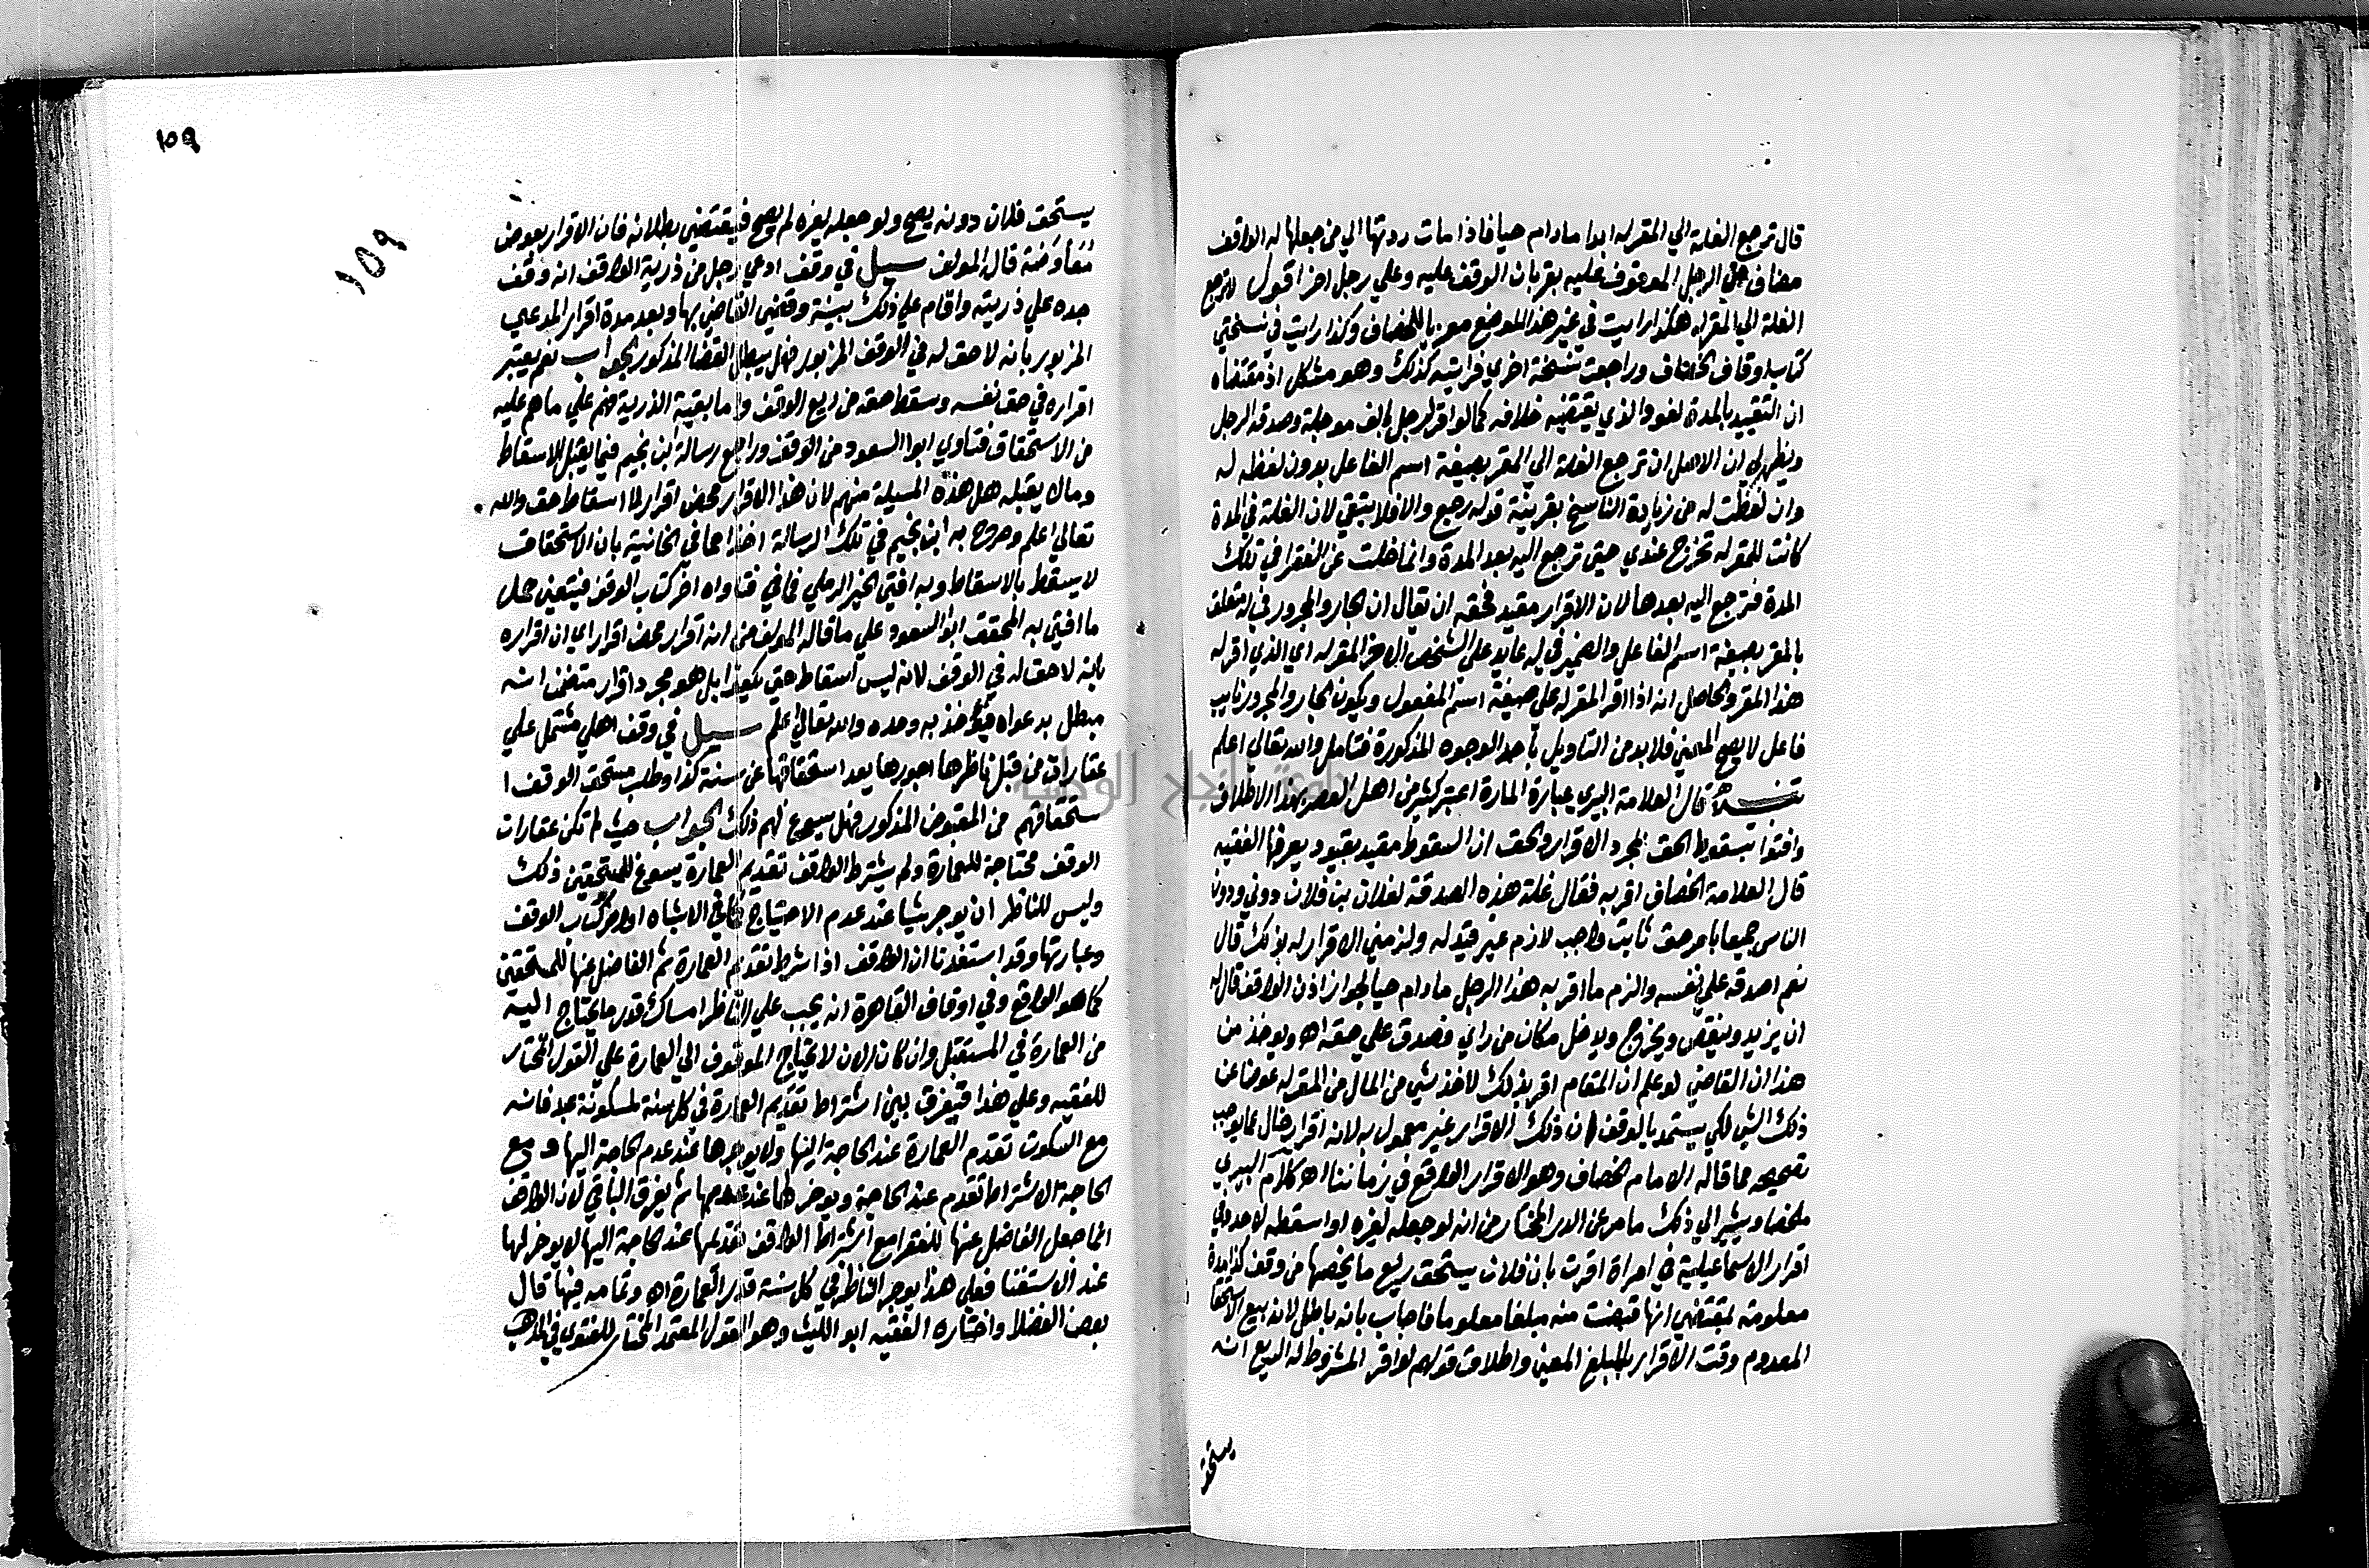 قال ترجع الغلة الي المقر له ابدا مادام حيا فاذا مات رددتها الي من جعلها له الواقف
مضاف الرجل الموقوف عليه يقر بان الوقف عليه وعلي رجل اخر اقول لا ترجع
الغلة الي المقر له هكذا رايت في غير هذا الموضع معزيا للخصاف وكذا رايت في نسختي
كتاب اوقاف الخصاف وراجعت نسخة اخري فرايته كذلك وهو مشكل اذ مقتضاه
ان التقييد بالمدة لغو والذي يقتضيه خلافه كما لو اقر لرجل بالف موجلة وصدقه الرجل
ويظهر لي ان الاصل ان ترجع الغلة الي المقر بصيغة اسم الفاعل بدون لفظه له
وان لفظت له من زيادة الناسخ بقرينة قوله رجع والا فلا يتبقي لان الغلة في المدة
كانت للمقر له تخرج عندي حيتي ترجع اليه بعد المدة وانما خلت عن الفقرا في تلك
المدة فترجع اليه بعدها لان الاقرار مقيد فحقه ان تقال ان الجار والمجرور في له متعلق
بالمقر بصيغة اسم الفاعل والضمير في له عايد علي الشخص الاخر المقر له اي الذي اقر له
هذا المقر والحاصل انه اذا اقر المقر له علي صيغة اسم المفعول ويكون الجار والمجرور نايب
فاعل لا يصح المعني فلا بد من التاويل باحد الوجوه المذكورة فتامل والله تعالي اعلم
تنبيه قال العلامة البيري عبارة المارة اعتبر كثير من اهل العصر بهذا الاطلاق
وافتوا بسقوط الحق بمجرد الاقرار والحق ان السقوط مقيد بقيود يعرفها الفقيه
قال العلامة الخصاف اقر به فقال غلة هذه الصدقة لفلان بن فلان دوني ودون
الناس جميعا بامر حق ثابت واجب لازم عرفته له ولزمني الاقرار له بذلك قال
نعم اصدقه علي نفسه والزم ما اقر به هذا الرجل مادام حيا لجواز اذن الواقف قال له
ان يزيد وينقص ويخرج ويدخل مكان من راي فصدق علي حقه اه ويوخذ من
هذا ان القاضي لو علم ان المقام اقر بذلك لاخذ شي من المال من المقر له عوضا عن
ذلك الشي لكي يستمد بالوقف ان ذلك الاقرار غير معمول به لانه اقرار خال عما يوجب
تصحيحه مما قاله الامام الخصاف وهو الاقرار الواقع في زماننا اه كلام البيري
ملخصا ويشير الي ذلك ما مر عن الدر المختار من انه لو جعله لغيره او اسقطه لاحد وفي
اقرار الاسماعيلية في امراة اقرت بان فلان يستحق ريع ما يخصها من وقف كذا مدة
معلومة بمقتضي انها قبضت منه مبلغا معلوما فاجاب بانه باطل لانه بيع الاستحقاق
المعدوم وقت الاقرار بالمبلغ المعين واطلاق قولهم لو اقر المشروط له الريع انه
يستحق
١٥٩
١٥٩
يستحق فلان دونه يصح ولو جعله لغيره لم يصح فيقتضي بطلانه فان الاقرار بعوض
مُعَاوَضَة قال المولف سيل في وقف ادعي رجل من ذرية الواقف انه وقف
جده علي ذريته واقام علي ذلك ببينة وقضي القاضي بها وبعد مدة اقرار المدعي
المزبور بانه لا حق له في الوقف المزبور فهل يبطل القضا المذكور الجواب نعم يعتبر
اقراره في حق نفسه وسقط حقه من ريع الوقف واما بقية الذرية فهم علي ماهم عليه
من الاستحقاق فتاوي ابوا السعود من الوقف وراجع رسالة ابن نجيم فيما يقبل الاسقاط
وما لا يقبله هل هذه المسيلة منهم لان هذا الاقرار محض اقرار لا اسقاط حق والله
تعالي اعلم وصرح به ابن نجيم في تلك الرسالة اخذا مما في الخانية بان الاستحقاق
لا يسقط بالاسقاط وبه افتي الخير الرملي كما في فتاواه اخر كتاب الوقف فيتعين حمل
ما افتي به المحقق ابوا السعود علي ما قاله المولف من انه اقرار محض اقرار اي ان اقراره
بانه لا حق له في الوقف لانه ليس اسقاط حق لغيره بل هو مجرد اقرار متضمن انه
مبطل بدعواه فيؤخذ به وحده والله تعالي اعلم سيل في وقف اهلي مشتمل علي
عقارات من قبل ناظرها اجورها بعد استحقاقها عن سنة كذا وطلب مستحق الوقف ا
ستحقاقهم من المقبوض المذكور فهل يسوغ لهم ذلك الجواب حيث لم تكن عقارات
الوقف محتاجة للعمارة ولم يشترط الواقف تقديم العمارة يسوغ للمستحقين ذلك
وليس للناظر ان يوجر شيا عند عدم الاحتياج كما في الاشباه اواخر كتاب الوقف
وعبارتها وقد استفدنا ان الواقف اذا شرط تقديم العمارة ثم الفاضل عنها للمستحقين
كما هو الواقع وفي اوقاف القاهرة انه يجب علي الناظر امساك قدر ما يحتاج اليه
من العمارة في المستقبل وان كان الان لا يحتاج الموقوف الي العمارة علي القول المختار
للفقيه وعلي هذا فيفرق بين اشتراط تقديم العمارة في كل سنة والسكوت عنه فانه
مع السكوت تقدم العمارة عند الحاجة اليها ولا يوجرها عند عدم الحاجة اليها ومع
الحاجة الاشتراط تقدم عند الحاجة ويوخر لها عند عدمها ثم يفرق الباقي لان الواقف
انما جعل الفاضل عنها للفقرا مع اشتراط الواقف تقديمها عند الحاجة اليها لا يوخر لها
عند الاستغنا فعلي هذا يوجر الناظر في كل سنة قدر العمارة اه وتمامه فيها قال
بعض الفضلا واختاره الفقيه ابو الليث وهو القول المعتمد المختار للفتوي في المذهب
جامعة النجاح الوطنية